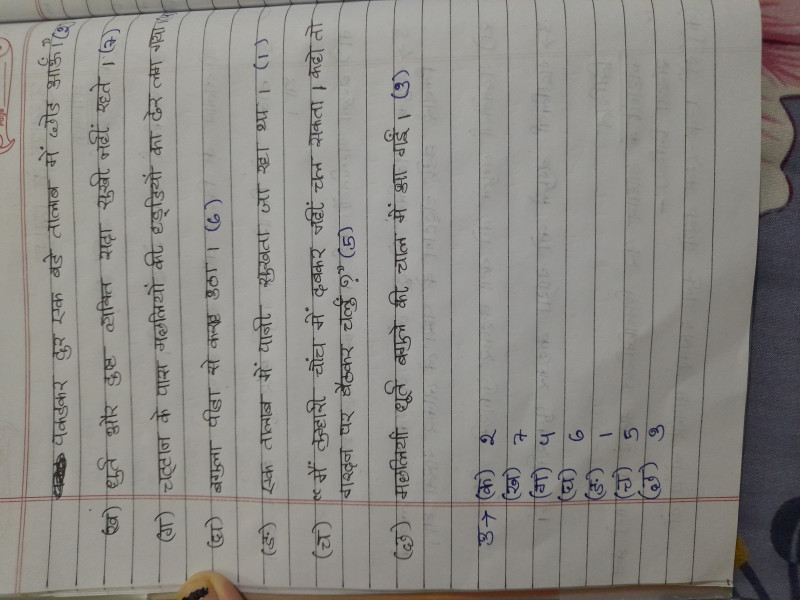 पकडकर दुर एक बडे तालाब में छोड आऊँ? (2)
(ख) धुर्त और दुष्ट व्यक्ति सदा सुखी नहीं रहते । (7)
(ग) चट्टान के पास मछलियों की हड्डियों का ढेर लग गया।
(घ) बगुला पीडा से कराह उठा । (6)
(ङ) एक तालाब में पानी सुखता जा रहा था । (1)
(च) "मैं तुम्हारी चोंच में दबकर नहीं चल सकता । कहो तो
गरदन पर बैठकर चलुँ ?" (5)
(छ) मछलियाँ धूर्त बगुले की चाल में आ गईं । (3)
उ→ (क) 2
(ख) 7
(ग) 4
(घ) 6
(ङ) 1
(च) 5
(छ) 3